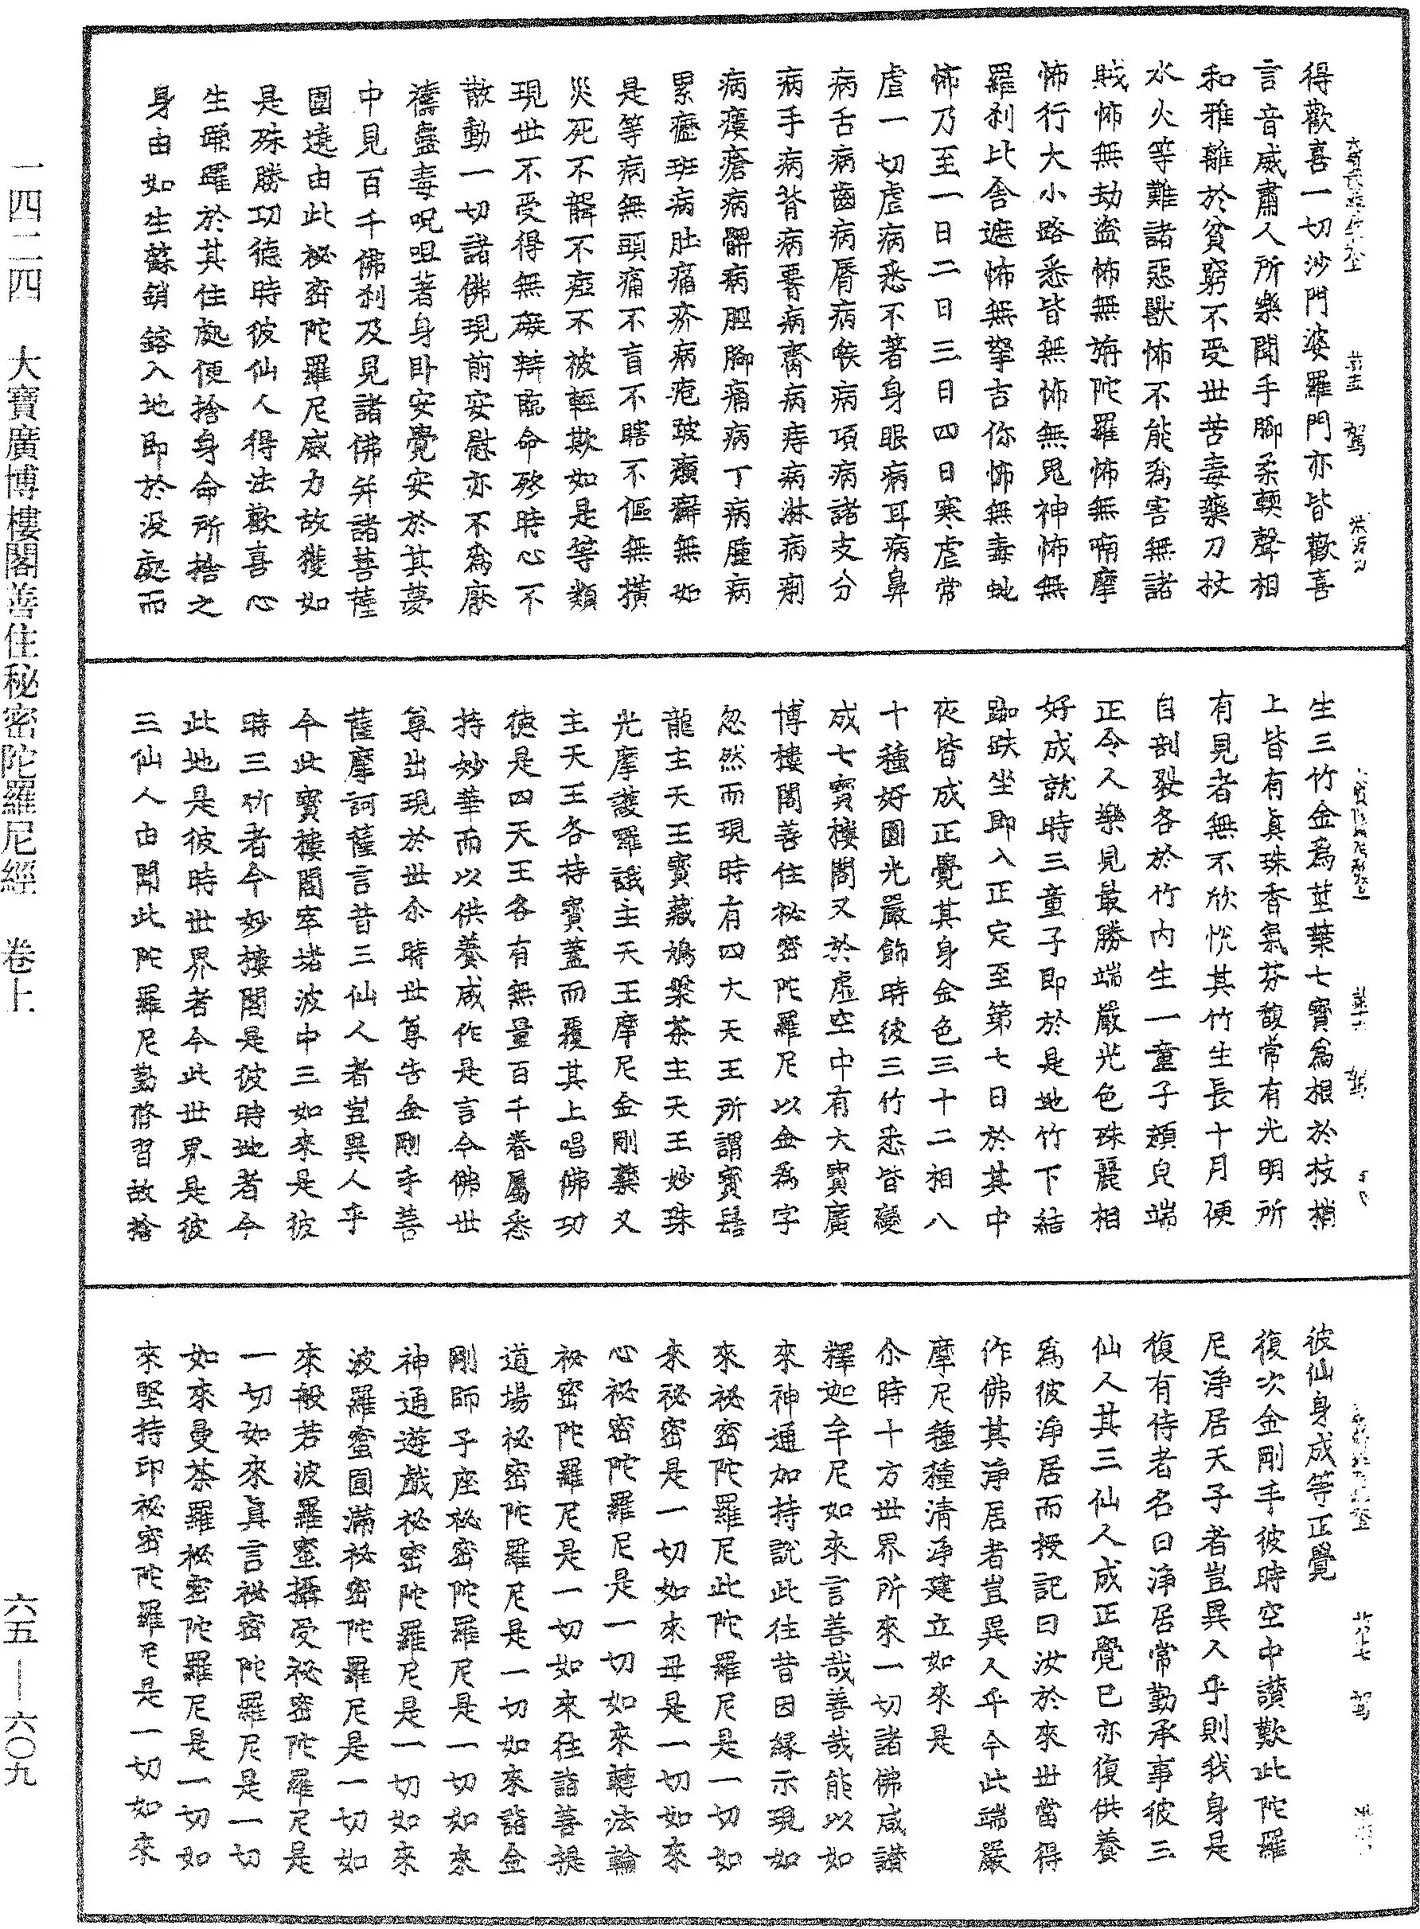 得歡喜一切沙門婆羅門亦皆歡喜
言音威肅人所樂聞手腳柔輭聲相
和雅離於貧窮不受世苦毒藥刀杖
水火等難諸惡獸怖不能為害無諸
賊怖無劫盜怖無旃陀羅怖無喃摩
怖行大小路悉皆無怖無鬼神怖無
羅剎比舍遮怖無拏吉你怖無毒虵
怖乃至一日二日三日四日寒虐常
虐一切虐病悉不著身眼病耳病鼻
病舌病齒病脣病喉病項病諸支分
病手病背病䉼病齎病痔病淋病痢
病瘻瘡病髀病脛腳痛病丁病腫病
累癧班病肚痛疥病疱皰癩癬無如
是等病無頭痛不盲不瞎不傴無橫
災死不聾不瘂不被輕欺如是等類
現世不受得無礙辯臨命終時心不
散動一切諸佛現前安慰亦不為厭
禱蠱毒呪咀著身臥安覺安於其夢
中見百千佛剎及見諸佛并諸菩薩
圍遶由此祕密陀羅尼威力故獲如
是殊勝功德時彼仙人得法歡喜心
生踊躍於其住處便捨身命所捨之
身由如生蘇銷鎔入地即於沒處而
生三竹金為莖葉七寶為相於枝梢
上皆有真珠香氣芬馥常有光明所
有見者無不欣恱其竹生長十月便
自剖裂各於竹內生一童子顏皃端
正令人樂見最勝端嚴光色殊麗相
好成就時三童子即於是地竹下結
跏趺坐即入正定至第七日於其中
夜皆成正覺其身金色三十二相八
十種好圓光嚴飾時彼三竹悉皆變
成七寶樓閣又於虛空中有大寶廣
博樓閣善住祕密陀羅尼以金為字
忽然而現時有四大天王所謂寶髻
龍主天王寶藏鳩槃茶主天王妙珠
光摩護羅誐主天王摩尼金剛藥叉
主天王各持寶蓋而覆其上唱佛功
德是四天王各有無量百千眷屬悉
持妙華而以供養咸作是言今佛世
尊出現於世尒時世尊告金剛手菩
薩摩訶薩言昔三仙人者豈異人乎
今此寶樓閣窣堵波中三如來是彼
時三竹者今妙樓閣是彼時地者今
此地是彼時世界者今此世界是彼
三仙人由聞此陀羅尼勤脩習故捨
彼仙身成等正覺
復次金剛手彼時空中讚歎此陀羅
尼淨居天子者豈異人乎則我身是
復有侍者名曰淨居常勤承事彼三
仙人其三仙人成正覺已亦復供養
為彼淨居而授記曰汝於來世當得
作佛其淨居者豈異人乎今此端嚴
摩尼種種清淨建立如來是
尒時十方世界所來一切諸佛咸讃
釋迦牟尼如來言善哉善哉能以如
來神通加持說此往昔因緣示現如
來祕密陀羅尼此陀羅尼是一切如
來祕密是一切如來母是一切如來
心祕密陀羅尼是一切如來轉法輪
祕密陀羅尼是一切如來往詣菩提
道場祕密陀羅尼是一切如來詣金
剛師子座祕密陀羅尼是一切如來
神通遊戲祕密陀羅尼是一切如來
波羅蜜圓滿祕密陀羅尼是一切如
來般若波羅蜜攝受祕密陀羅尼是
一切如來真言祕密陀羅尼是一切
如來曼茶羅祕密陀羅尼是一切如
來堅持印祕密陀羅尼是一切如來
一四二四 大寶廣博樓閣善住秘密陀羅尼經 卷上
六五—六〇九